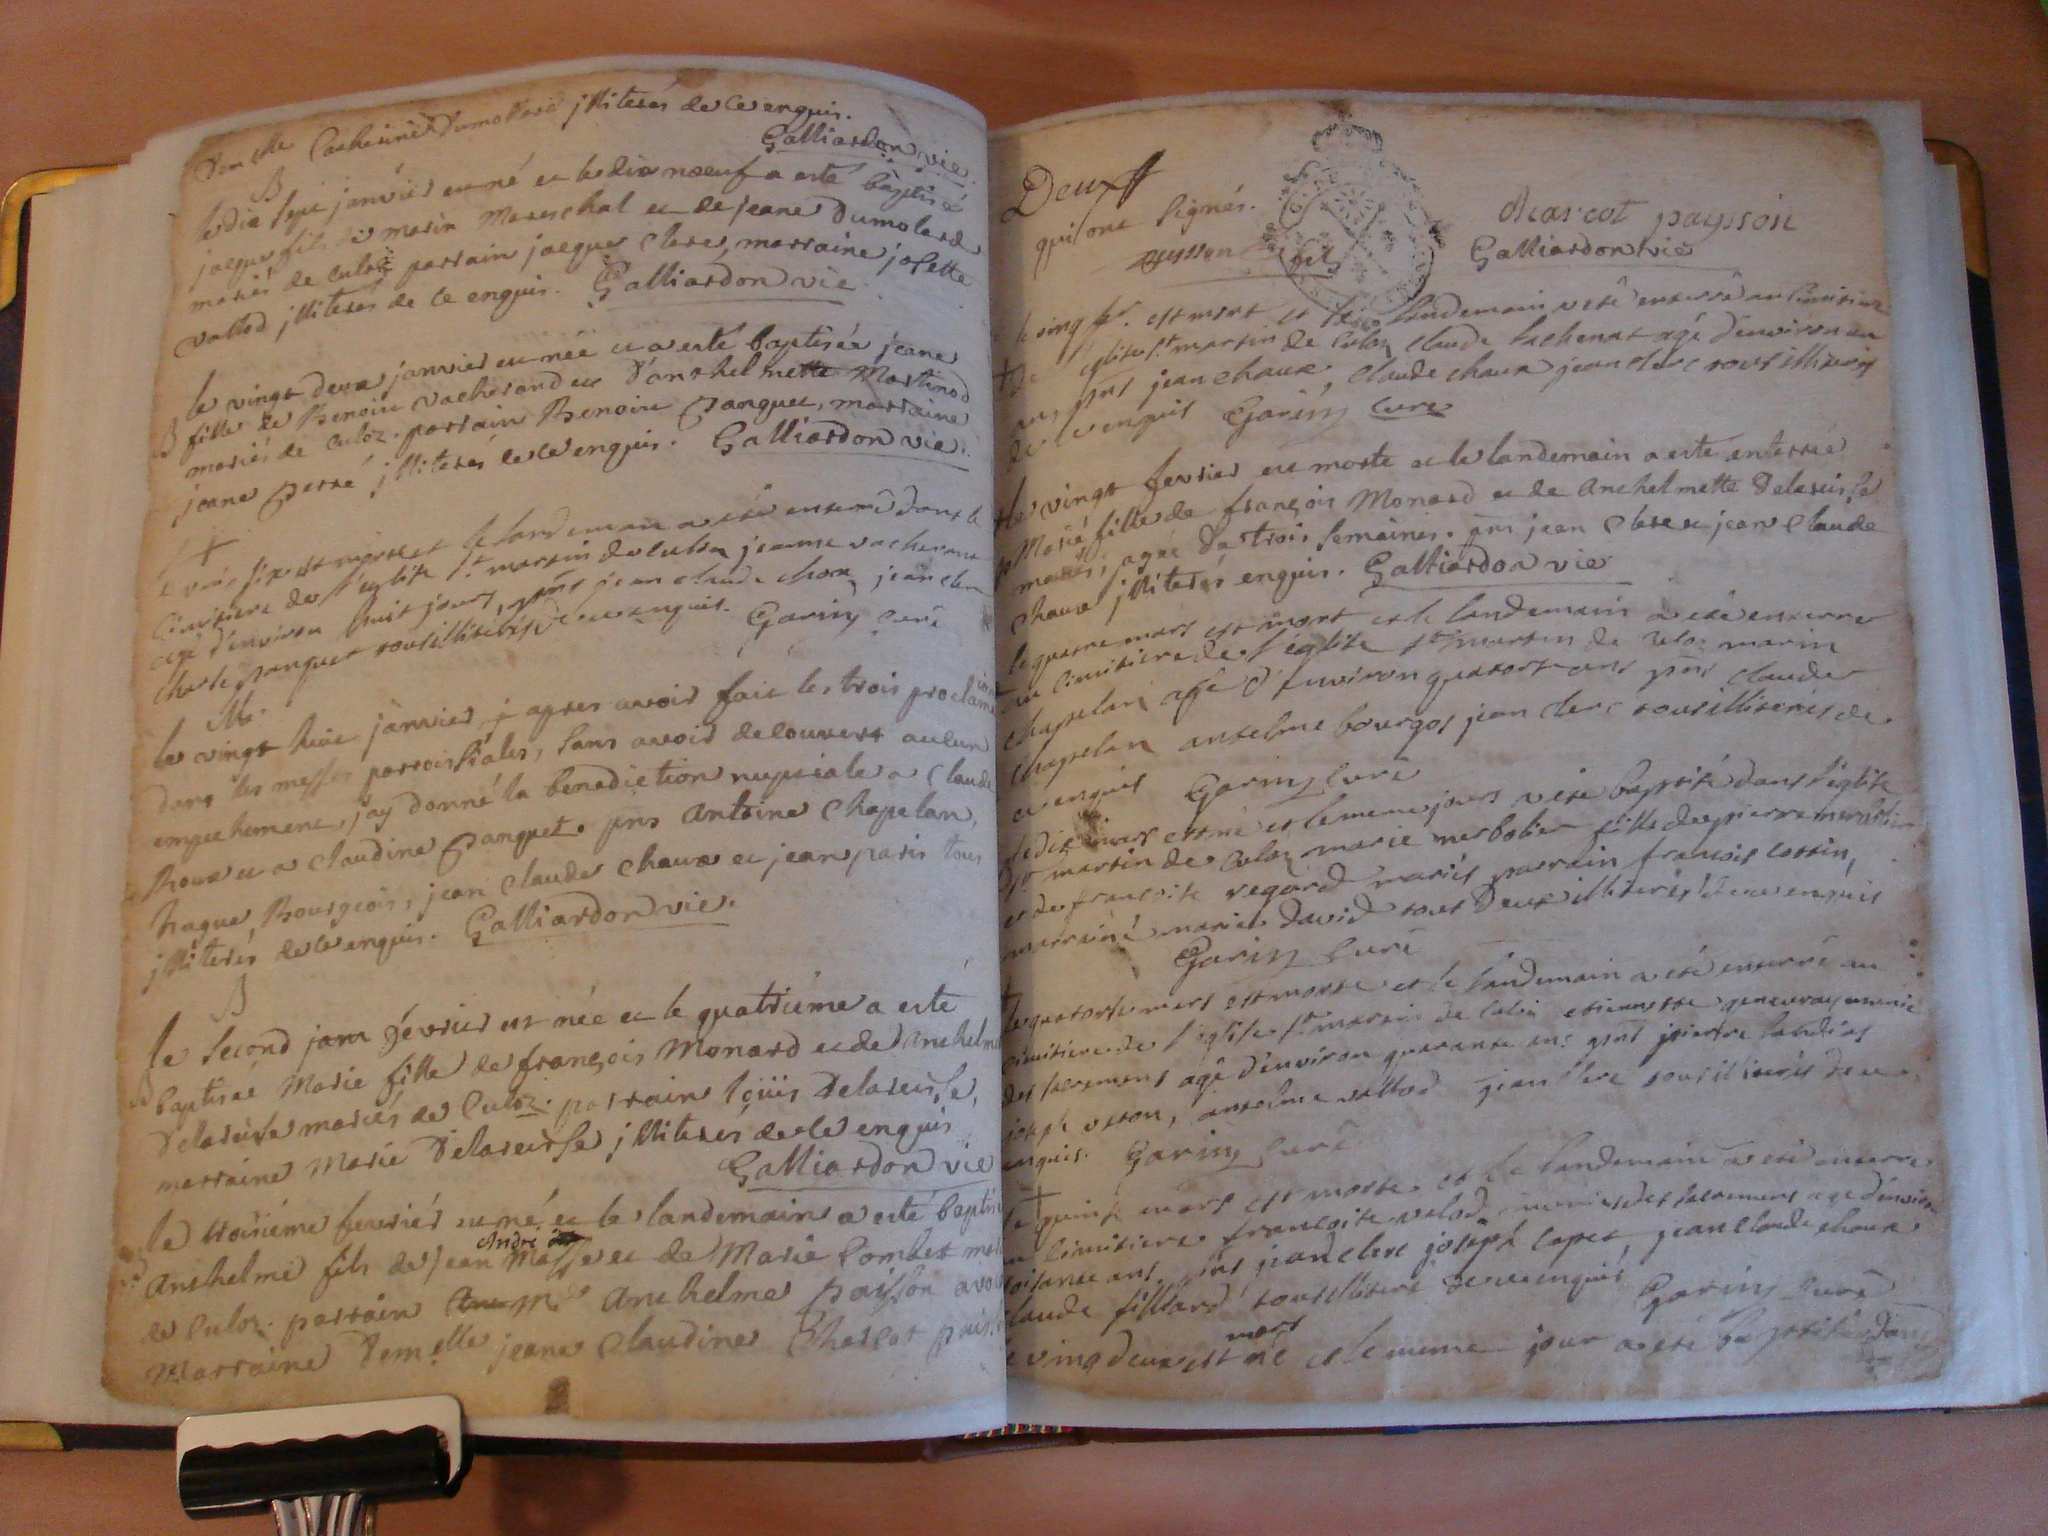 Dem elle Catherine Dumolard jlliterés de ce enquis.
Galliardon vic
B
le dix sept janvier est né et le dix neuf a esté baptisé
jacque fils de marin Mareschal et de jeane Dumolard
mariés de Culoz parrain jacque Clerc, marraine josette
Vallod jlliterés de ce enquis. Galliardon vic
le vingt deux janvier est née et a esté baptisée jeane
B fille de Benoit Vacherand et d'anthelmette Martinod
mariés de Culoz. parrain Benoit Panguet, marraine
jeane Perré jlliterés de ce enquis. Galliardon vic.
+
le vint six est morte et le landemain a été enterré dans le
Cimitiere de l'eglise st martin de culoz jeanne vacherand
agé d'environ huit jours, pnts jean claude chaux jean clerc
charle panguet tous illiterés de ce enquis. Garin curé
M.
le vingt huit janvier, apres avoir fait les trois proclama
dans les messes parroissiales, sans avoir decouvert aucun
empechement, j'ay donné la benediction nuptiale a Claude
Roux et a claudine Panguet. pns antoine Chapelan,
hugue Bourgeois, jean claude chaux et jean paris tous
jlliterés de ce enquis. Galliardon vic.
B
le second février est née et le quatriéme a esté
baptisée Marie fille de françois Monard et de Anthelme
Delareusse mariés de Culoz. parrain loüis Delareusse,
marraine Marie Delareusse jlliterés de ce enquis
Galliardon vic
le troisiéme fevriér est né et le landemain a esté baptisé
André
Anthelme fils de jean Masse et de Marie Combet mar
de Culoz. parrain Mr Anthelme paisson avo
Marraine Dem elle jeane Claudine Chascot pais
Deux
qui ont signés.
Chascot paysson
paysson
Galliardon vic
le ving fr. est mort et le landemain a eté enterré au Cimitiere
de l'eglise st martin de Culoz claude lachenat agé d'environ un
an, pnts jean chaux, claude chaux jean clerc tous illiterés
de ce enquis Garin curé
le vingt fevrier est morte et le landemain a esté enterrée
Marie fille de françois Monard et de Anthelmette Delareusse
mariés, agée de trois semaines. pns jean Clerc et jean Claude
chaux jlliterés enquis. Galliardon vic
le quatre mars est mort et le landemain a eté enterré
au Cimitiere de l'église st martin de culoz marin
chapelan agé d'environ quatorse ans pnts claude
chapelan anselme bourgos jean clerc tous illiterés de
ce enquis Garin curé
le dix mars est né et le meme jours a eté baptisé dans l'eglise
st martin de Culoz marie merbolier fille de pierre merbolier
et de francoise regard mariés parrain francois cottin,
marraine marie david tous deux illiterés de ce enquis
Garin curé
le quatorse mars est morte et le landemain a eté enterré au
cimitiere de l'eglise st martin de culoz etiennette genevray munie
des sacrement agé d'environ quarante ans pnts pierre landias
joseph, anselme vallod jean clerc tous illiterés de ce
enquis. Garin curé
+
le quinse mars est morte et le landemain a eté enterré
au cimitiere francoise valod munie des sacrement agé d'environ
soisante ans. pnts jean clerc joseph capet, jean claude chaux
claude filliard tous illiteré de ce enquis Garin curé
mars
le ving deux est né et le meme jour a eté baptisé dans